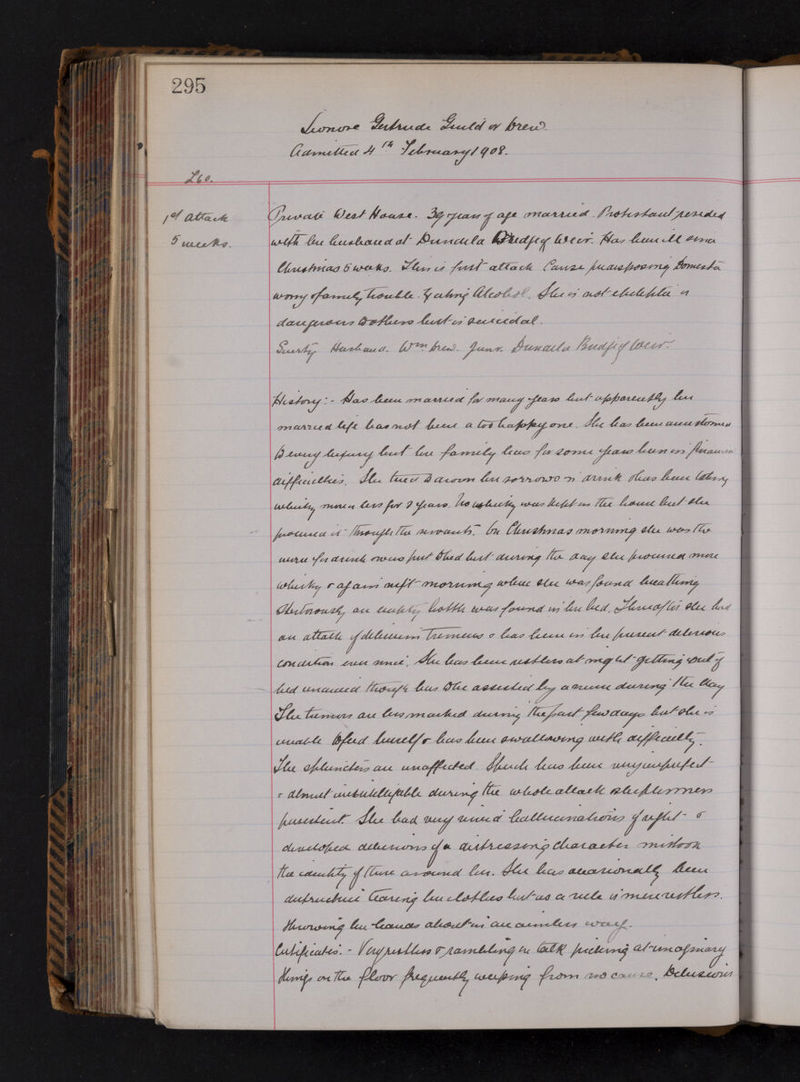 295
Leonore Gertrude Guild or Drew
Admitted 4th February 1908.
1st attack
5 weeks.
Private West House. 39 years of age married Protestant resided
with her husband at Dundela Bridge of Weir. Has been ill since
Christmas 5 weeks. This is first attack Cause predisposing Domestic
worry & family trouble. Exciting Alcohol. She is not epileptic or
dangerous to others but is suicidal.
Surety Husband. Wm Drew. Junr. Dundela Bridge of Weir.
History:- Has been married for many years but apparently her
married life has not been a too happy one. She has been accustomed
to every luxury but her family has for some years been in financial
difficulties. She tried to drown her sorrows in drink & has been taking
whisky more or less for 2 years. No whisky was kept in the house but she
procured it through the servants. On Christmas morning she was the
worse for drink & was put to bed but during the day she procured more
whisky & again next morning when she was found breathing
stertorously an empty bottle was found in her bed. Thereafter she had
an attack of delirium tremens & has been in her present delirious
condition ever since. She has been restless at night getting out of
bed unaided though has to be assisted by a nurse during the day
The tremors are less marked during the past few days but she is
unable to feed herself & has been swallowing with difficulty.
The sphincters are unaffected. Speech has been very imperfect
& almost unintelligible during the whole attack sleeplessness
persistent. She had very vivid hallucinations of sight &
developed delusions of a distressing character mistook
the identity of those around her. She has occasionally been
destructive tearing her clothes but as a rule is mere restless.
throwing her hands about in an aimless way.
Certificates:- Very restless & rambling in talk picking at imaginary
things on the floor frequently weeping from no cause. Delusions